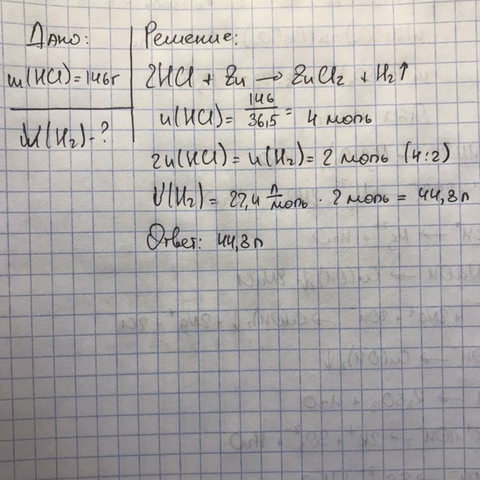 Дано:
m(HCl)=146г
V(H₂)-?
Решение:
2HCl + Zn → ZnCl₂ + H₂↑
n(HCl)= 146/36,5 = 4 моль
2n(HCl)=n(H₂)= 2 моль (4:2)
V(H₂)= 22,4 л/моль · 2 моль = 44,8л
Ответ: 44,8л